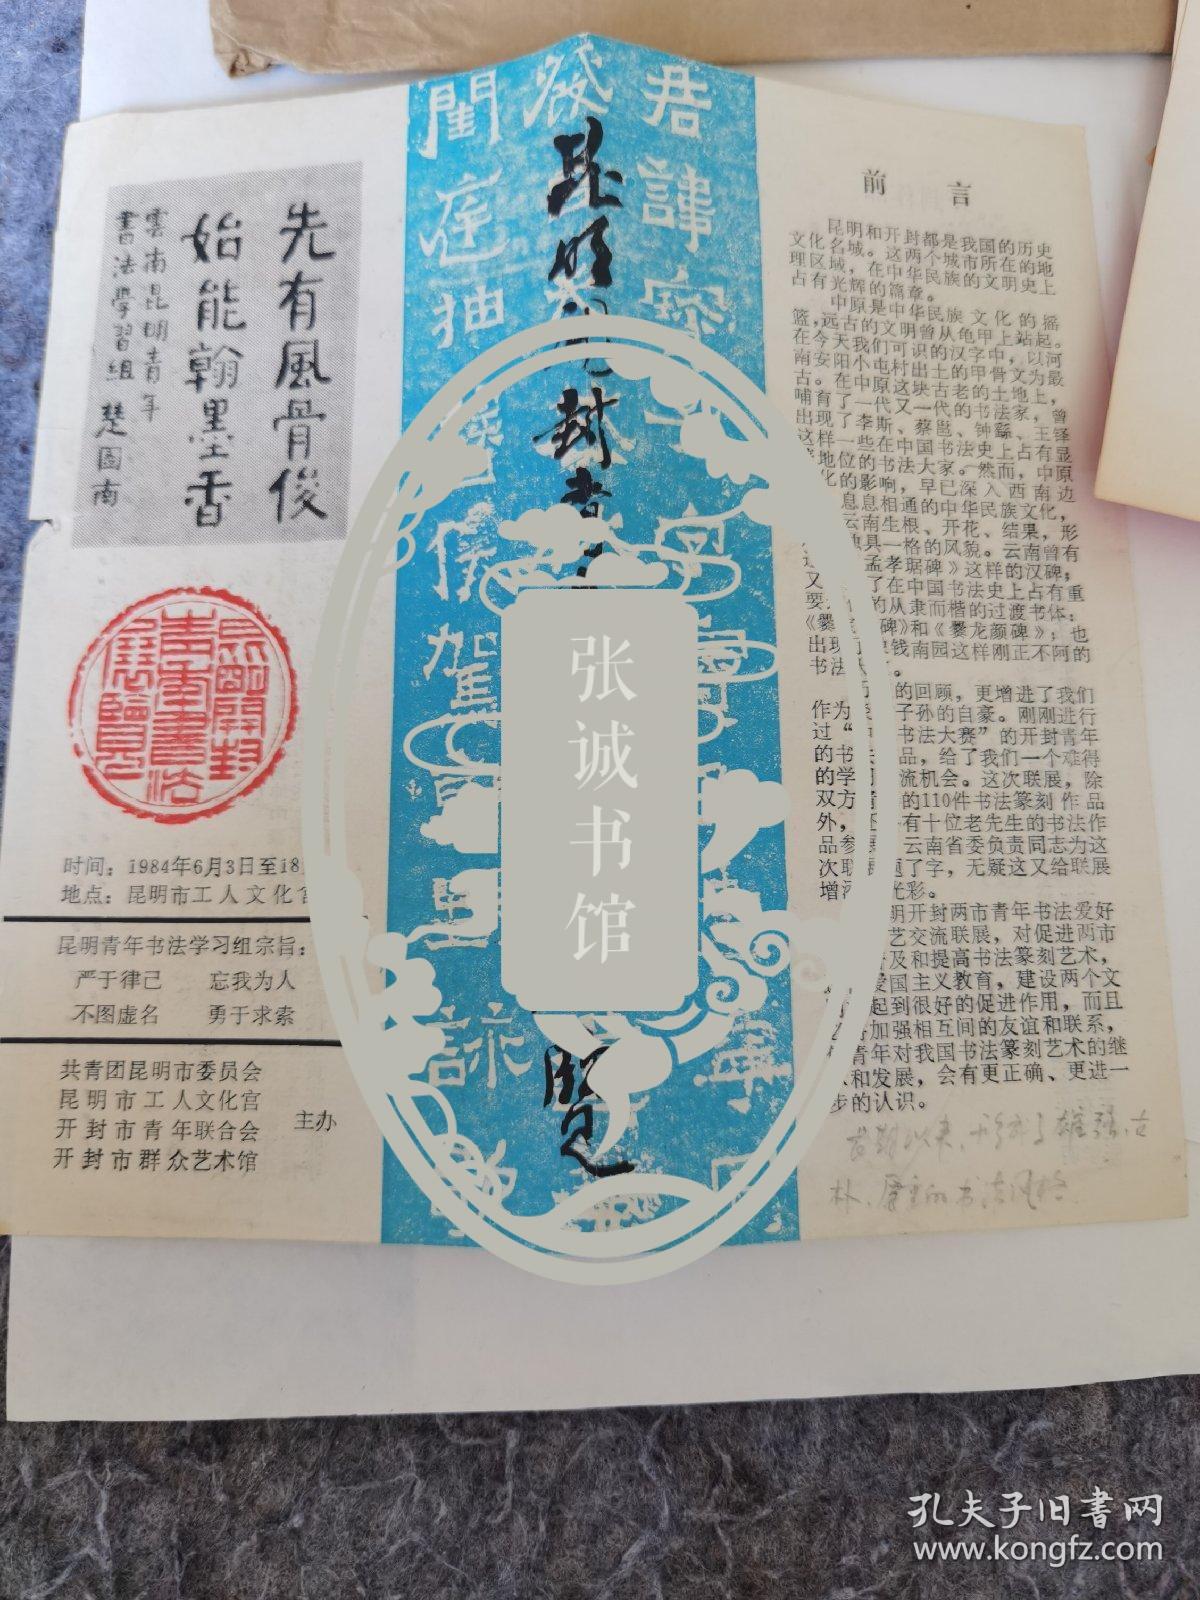 先有風骨俊
始能翰墨香
雲南昆明青年
書法學習組 楚圖南
昆明開封
青年書法
展覽
时间：1984年6月3日至18
地点：昆明市工人文化宫
昆明青年书法学习组宗旨：
严于律己 忘我为人
不图虚名 勇于求索
共青团昆明市委员会
昆明市工人文化宫
开封市青年联合会
开封市群众艺术馆
主办
君諱
閨庭抽
駕
詠
昆明開封青
覽
前言
昆明和开封都是我国的历史
文化名城。这两个城市所在的地
理区域，在中华民族的文明史上
占有光辉的篇章。
中原是中华民族文化的摇
篮，远古的文明曾从龟甲上站起。
在今天我们可识的汉字中，以河
南安阳小屯村出土的甲骨文为最
古。在中原这块古老的土地上，
哺育了一代又一代的书法家，曾
出现了李斯、蔡邕、钟繇、王铎
这样一些在中国书法史上占有显
地位的书法大家。然而，中原
化的影响，早已深入西南边
息息相通的中华民族文化，
云南生根、开花、结果，形
具一格的风貌。云南曾有
孟孝琚碑》这样的汉碑；
又 了在中国书法史上占有重
要 的从隶而楷的过渡书体：
《爨 碑》和《爨龙颜碑》；也
出现 钱南园这样刚正不阿的
书法
的回顾，更增进了我们
作为 子孙的自豪。刚刚进行
过“ 书法大赛”的开封青年
的 品，给了我们一个难得
的学 流机会。这次联展，除
双方 的110件书法篆刻作品
外， 有十位老先生的书法作
品参 云南省委负责同志为这
次联展题了字，无疑这又给联展
增 光彩。
明开封两市青年书法爱好
艺交流联展，对促进两市
及和提高书法篆刻艺术，
爱国主义教育，建设两个文
起到很好的促进作用，而且
加强相互间的友谊和联系，
青年对我国书法篆刻艺术的继
和发展，会有更正确、更进一
步的认识。
雄强、古
朴、厚重的书法风格
张诚书馆
孔夫子旧书网
www.kongfz.com